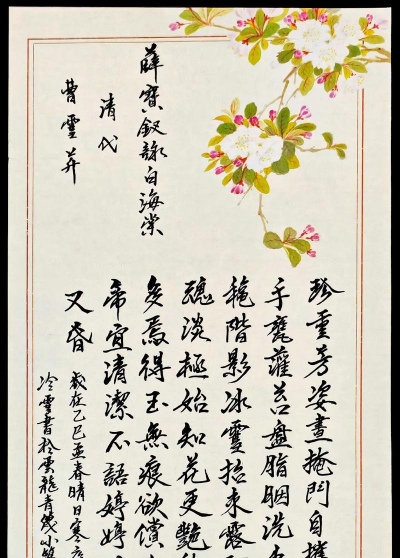 薛寶釵詠白海棠
清代
曹雪芹
珍重芳姿晝掩門自攜
手甕灌苔盤脂胭洗
穐階影冰雪招來露
魂淡極始知花更艷
多焉得玉無痕欲償
帝宜清潔不語婷婷
又昏
歲在乙巳孟春晴日寒
冷雪書於雲龍青